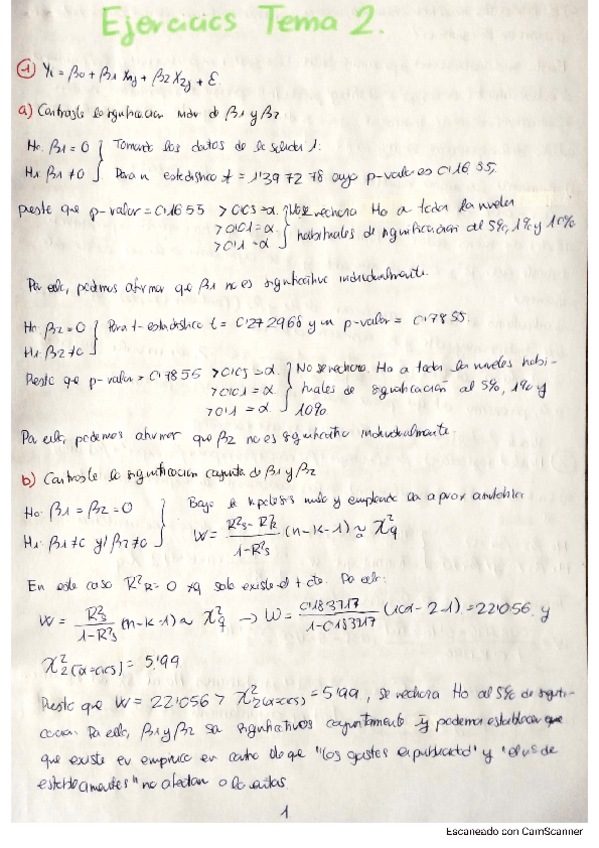 Ejercicios Tema 2.
① Yi = β0 + β1 X1j + β2 X2j + ε
a) Contraste la significación indiv de β1 y β2
H0: β1 = 0 } Tomando los datos de la salida 1:
H1: β1 ≠ 0 Para un estadístico t = 1'397278 cuyo p-valor es 0'1655.
Puesto que p-valor = 0'1655 > 0'05 = α. } No se rechaza H0 a todos los niveles
> 0'01 = α. habituales de significación al 5%, 1% y 10%
> 0'1 = α
Por ello, podemos afirmar que β1 no es significativa individualmente.
H0: β2 = 0 } Para t-estadístico t = 0'272968 y un p-valor = 0'7855.
H1: β2 ≠ 0
Puesto que p-valor = 0'7855 > 0'05 = α } No se rechaza H0 a todos los niveles habi-
> 0'01 = α tuales de significación al 5%, 1% y
> 0'1 = α 10%.
Por ello, podemos afirmar que β2 no es significativa individualmente.
b) Contraste la significación conjunta de β1 y β2
H0: β1 = β2 = 0 } Bajo la hipótesis nula y empleando la aprox
H1: β1 ≠ 0 y/ β2 ≠ 0 W = R²s - R²R / 1 - R²s (n-k-1) ≈ χ²q
En este caso R²R = 0 xq solo existe el t. cte. Por ello:
W = R²s / 1 - R²s (n-k-1) ~ χ²q → W = 0'183717 / 1 - 0'183717 (101 - 2 - 1) = 22'056 y
χ²2(α=0'05) = 5'99
Puesto que W = 22'056 > χ²2(α=0'05) = 5'99, se rechaza H0 al 5% de signifi-
cación. Por ello, β1 y β2 son significativos conjuntamente y podemos establecer que
que existe ev empírica en contra de que "los gastos en publicidad" y "el nº de
establecimientos" no afectan a la ventas.
1
Escaneado con CamScanner